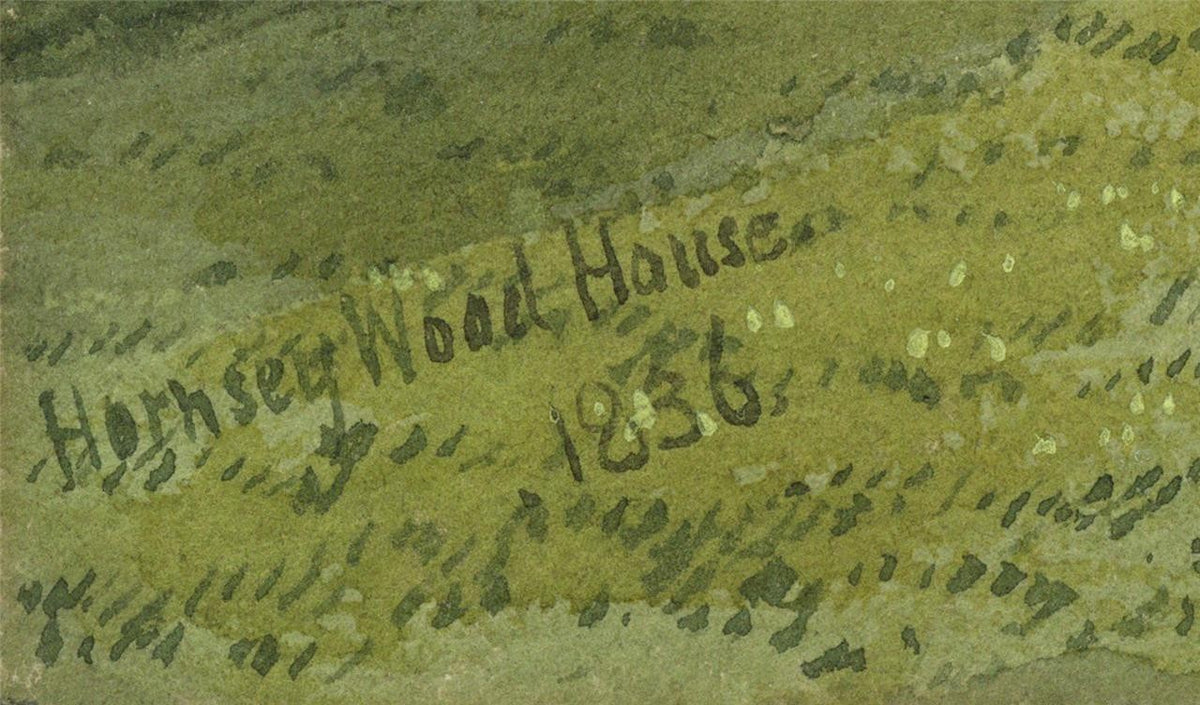 Hornsey Wood House
1836